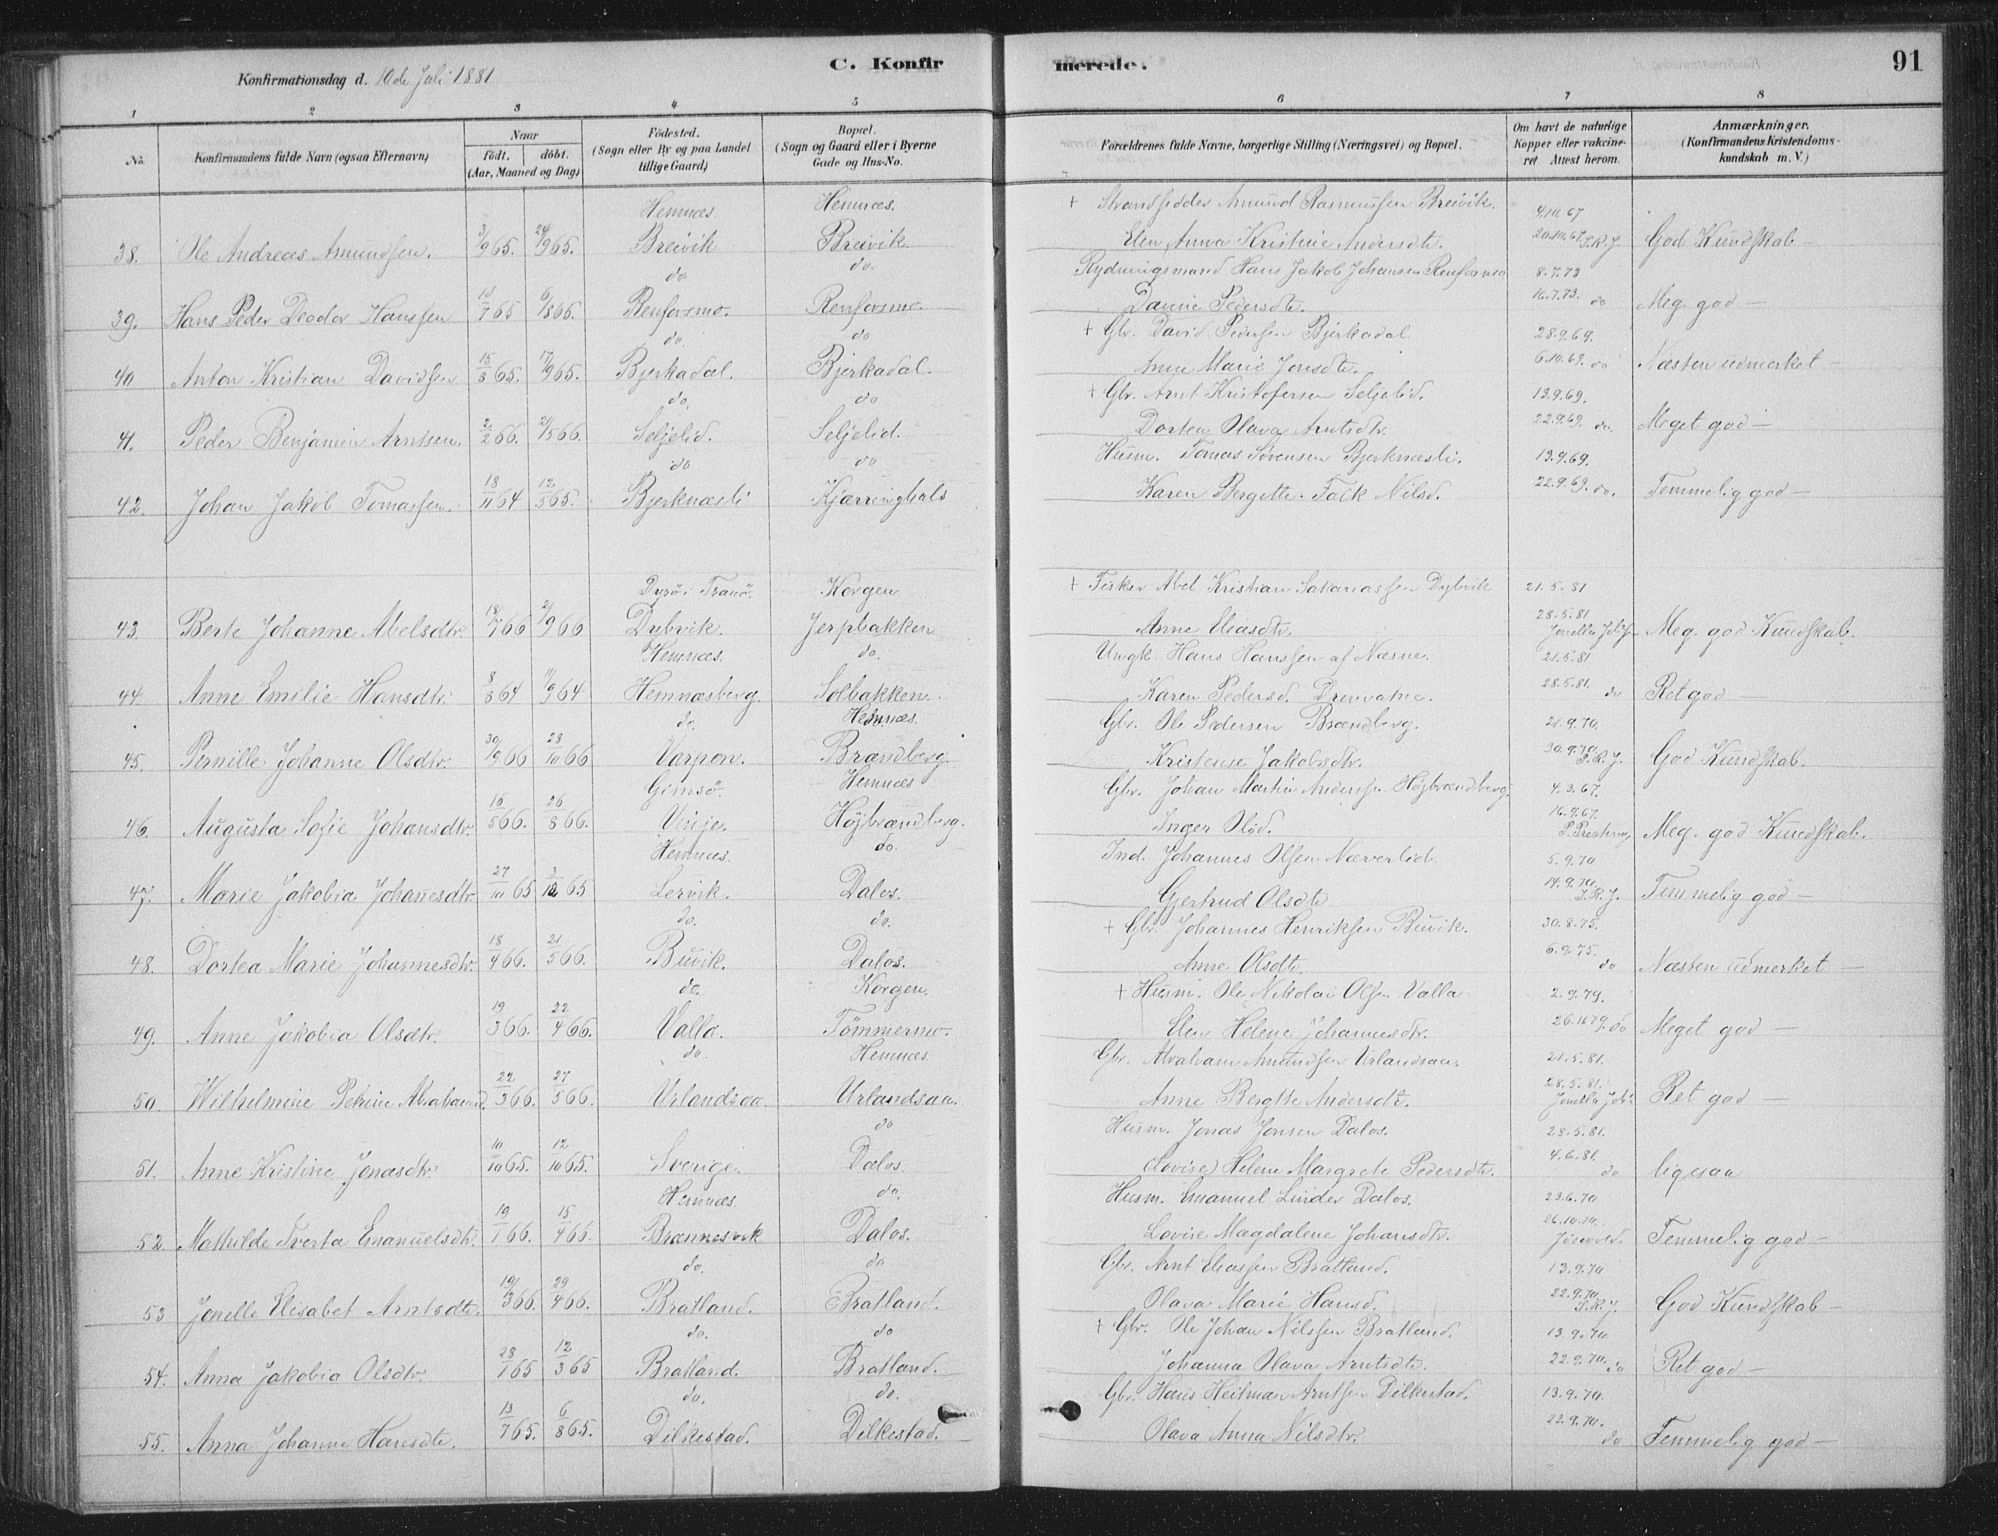 Konfirmationsdag d. 10de Juli 1881
C. Konfirmerede.
91
1 2 3 4 5 6 7 8
No.
Konfirmandens fulde Navn (ogsaa Efternavn)
Naar
født. døbt.
(Aar, Maaned og Dag)
Fødested.
(Sogn eller By og paa Landet tillige Gaard)
Bopæl.
(Sogn og Gaard eller i Byerne Gade og Hus-No.
Forældrenes fulde Navne, borgerlige Stilling (Næringsvei) og Bopæl.
Om havt de naturlige Kopper eller vaccineret. Attest herom.
Anmærkninger.
(Konfirmandens Kristendomskundskab m. V.)
Hemnæs. Hemnæs. + Strandsidder Amund Rasmussen Breivik. 4.10.67
38. Ole Andreas Amundsen. 3/9 65. 24/9 65. Breivik Breivik Elen Anna Kristine Andersdtr. 20.10.67 S.K.J. God Kundskab
do do. Rydningsmand Hans Jakob Johansen Renforsmo 8.7.73
39. Hans Peder Deodor Hanssen 15/7 65 6/8 65. Renforsmo. Renforsmo Danie Pedersdtr. 16.7.73. do Meg. god
do. do + Gbr. David Pedersen Bjerkadal. 28.9.69.
40 Anton Kristian Davidsen 15/8 65. 17/9 65. Bjerkadal. Bjerkadal. Anne Marie Jonsdtr. 6.10.69. do Næsten udmerket
do. do + Gbr. Arnt Kristofersen Seljelid. 13.9.69.
41. Peder Benjamin Arntsen. 2/2 66. 21/5 66. Seljelid. Seljelid. Dortea Olava Arntsdtr. 22.9.69. do. Meget god
do do Husm. Tomas Sørensen Bjerknæsli. 13.9.69.
42. Johan Jakob Tomassen. 18/11 64 12/5 65. Bjerknæsli Kjærringhals Karen Bergitte Falk Nilsd. 22.9.69. do. Temmelig god
Dyrø i Tranø. Korgen + Fisker Abel Kristian Sakariassen Dybvik 21.5.81
43. Berte Johanne Abelsdtr. 18/7 66 2/9 66 Dybvik. Jerpbakken Anne Eliasdtr. 28.5.81 Meg. god Kundskab.
Hemnæs. do. Ungk. Hans Hanssen af Næsne. 21.5.81
44. Anne Emilie Hansdtr. 8/8 64 11/9 64 Hemnæsberg. Solbakken. Karen Pedersd. Drevvatne. 28.5.81. do Ret god
do. Hemnæs. Gbr. Ole Pedersen Brændberg. 21.9.70.
45. Pernille Johanne Olsdtr. 30/9 66 28/10 66 Varpen. Brændberg Kristense Jakobsdtr. 30.9.70 S.K.J. God Kundskab.
Gimsø. Hemnæs Gbr. Johan Martin Anderssen Højbrændberg. 4.3.67.
46. Augusta Sofie Johansdtr. 16/5 66. 26/8 66. Vinje. Højbrændberg. Inger Olsd. 16.9.67. Meg. god Kundskab.
Hemnæs. do. Ind. Johannes Olsen Næverlid. 5.9.70
47. Marie Jakobia Johanesdtr. 27/10 65 3/12 65 Lervik. Dalos. Gertrud Olsdtr. 14.9.70. S.K.J. Temmelig god
do. do. + Gbr. Johannes Henriksen Buvik. 30.8.75.
48. Dortea Marie Johannesdtr. 18/4 66. 21/5 66. Buvik. Dalos. Anne Olsdtr. 6.9.75. do Næsten udmerket
do. Korgen. + Husm. Ole Nikolai Olsen Valla 2.9.79.
49. Anne Jakobia Olsdtr. 19/3 66. 22/4 66. Valla. Tømmermo. Elen Helene Johannesdtr. do Meget god
do. Hemnæs. Gbr. Abraham Amundsen Urlandsaa. 21.5.81.
50. Wilhelmine Petrine Abrahamsd. 22/3 66. 27/5 66. Urlandsaa. Urlandsaa. Anne Bergtte Andersdtr. 28.5.81. Ret god
do Husm. Jonas Jonsen Dalos. 28.5.81.
51. Anne Kristine Jonasdtr. 10/10 65. 12/10 65. Sverige. Dalos. Lovise Helene Margrete Pedersdtr. 4.6.81. do ligesaa
Hemnæs do. Husm. Emanuel Linder Dalos. 23.6.70
52. Mathilde Emanuelsdtr. 19/1 66. 15/4 66. Brennesvik Dalos. Lovise Magdalene Johansdtr. 26.10.70. Temmelig god
do. do Gbr. Arnt Eliassen Bratland. 13.9.70
53 Jonelle Elisabet Arntsdtr. 19/3 66. 29/4 66. Bratland. Bratland. Olava Marie Hansd. 22.9.70. S.K.J. God Kundskab
do. do + Gbr. Ole Johan Nilssen Bratland. 13.9.70
54. Anna Jakobia Olsdtr. 28/1 65 12/3 65 Bratland. Bratland. Johanna Olava Arntsdtr. 22.9.70. do Ret god
do. do. Gbr. Hans Heitman Arntsen Dilkestad. 13.9.70.
55. Anna Johanne Hansdtr. 13/7 65. 6/8 65. Dilkestad. Dilkestad. Olava Anna Nilsdtr. 22.9.70. do Temmelig god